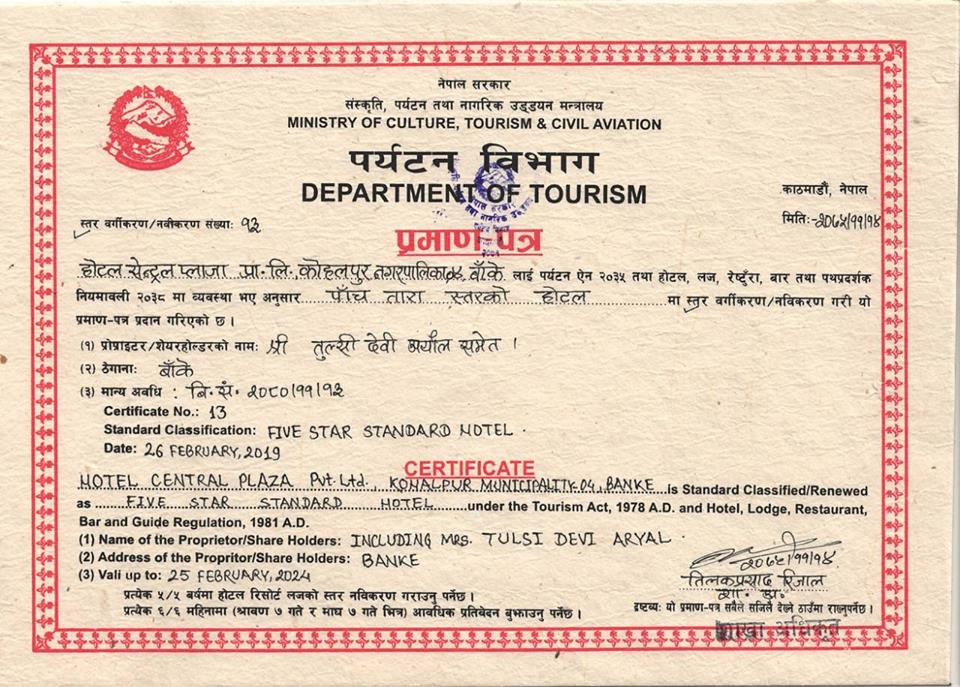 नेपाल सरकार
संस्कृति, पर्यटन तथा नागरिक उड्डयन मन्त्रालय
MINISTRY OF CULTURE, TOURISM & CIVIL AVIATION
पर्यटन विभाग
DEPARTMENT OF TOURISM
काठमाडौं, नेपाल
स्तर वर्गीकरण/नवीकरण संख्या: १३
मिति:-२०७५/११/१४
प्रमाण-पत्र
होटल सेन्ट्रल प्लाजा प्रा.लि. कोहलपुर नगरपालिका०४ बाँके लाई पर्यटन ऐन २०३५ तथा होटल, लज, रेष्टुँरा, बार तथा पथप्रदर्शक
नियमावली २०३८ मा व्यवस्था भए अनुसार पाँच तारा स्तरको होटल मा स्तर वर्गीकरण/नविकरण गरी यो
प्रमाण-पत्र प्रदान गरिएको छ ।
(१) प्रोप्राइटर/शेयरहोल्डरको नाम: श्री तुल्सी देवी अर्याल समेत ।
(२) ठेगाना: बाँके
(३) मान्य अवधि : बि.सं. २०८०/११/१३
Certificate No.: 13
Standard Classification: FIVE STAR STANDARD HOTEL.
Date: 26 FEBRUARY, 2019
CERTIFICATE
HOTEL CENTRAL PLAZA Pvt. Ltd., KOHALPUR MUNICIPALITY-04, BANKE is Standard Classified/Renewed
as FIVE STAR STANDARD HOTEL under the Tourism Act, 1978 A.D. and Hotel, Lodge, Restaurant,
Bar and Guide Regulation, 1981 A.D.
(1) Name of the Proprietor/Share Holders: INCLUDING MRS. TULSI DEVI ARYAL.
(2) Address of the Propritor/Share Holders: BANKE
(3) Vali up to: 25 FEBRUARY, 2024
२०७५/११/१४
तिलकप्रसाद रिजाल
शा. अ.
प्रत्येक ५/५ बर्षमा होटल रिसोर्ट लजको स्तर नविकरण गराउनु पर्नेछ ।
प्रत्येक ६/६ महिनामा (श्रावण ७ गते र माघ ७ गते भित्र) आवधिक प्रतिवेदन बुझाउनु पर्नेछ ।
द्रष्टब्य: यो प्रमाण-पत्र सबैले सजिलै देख्ने ठाउँमा राख्नुपर्नेछ ।
शाखा अधिकृत